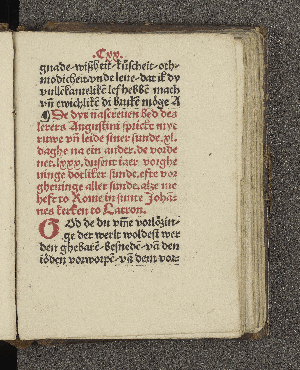 .Cxx.
gnade-wißheit-kůscheit-oth-
modicheit vnde leue-dat ik dy
vullēkamelikē lef hebbē mach
vn̄ ewichlikē di brukē möge A
¶ De dyt nascreuen bed des
lerers Augustini sprickt myt
ruwe vn̄ leide siner sunde.xl.
daghe na ein ander.de vorde
net.lxxx.dusent iaer vorghe
ninge dötliker sunde.efte vor
gheninge aller sunde.alze me
heft to Rome in sunte Johā-
nes kerken to Latron.
O God de du vm̄e vorlözin-
ge der werlt woldest wer
den ghebarē-besnedē-vā den
iöden vorworpē-vā dem vor-